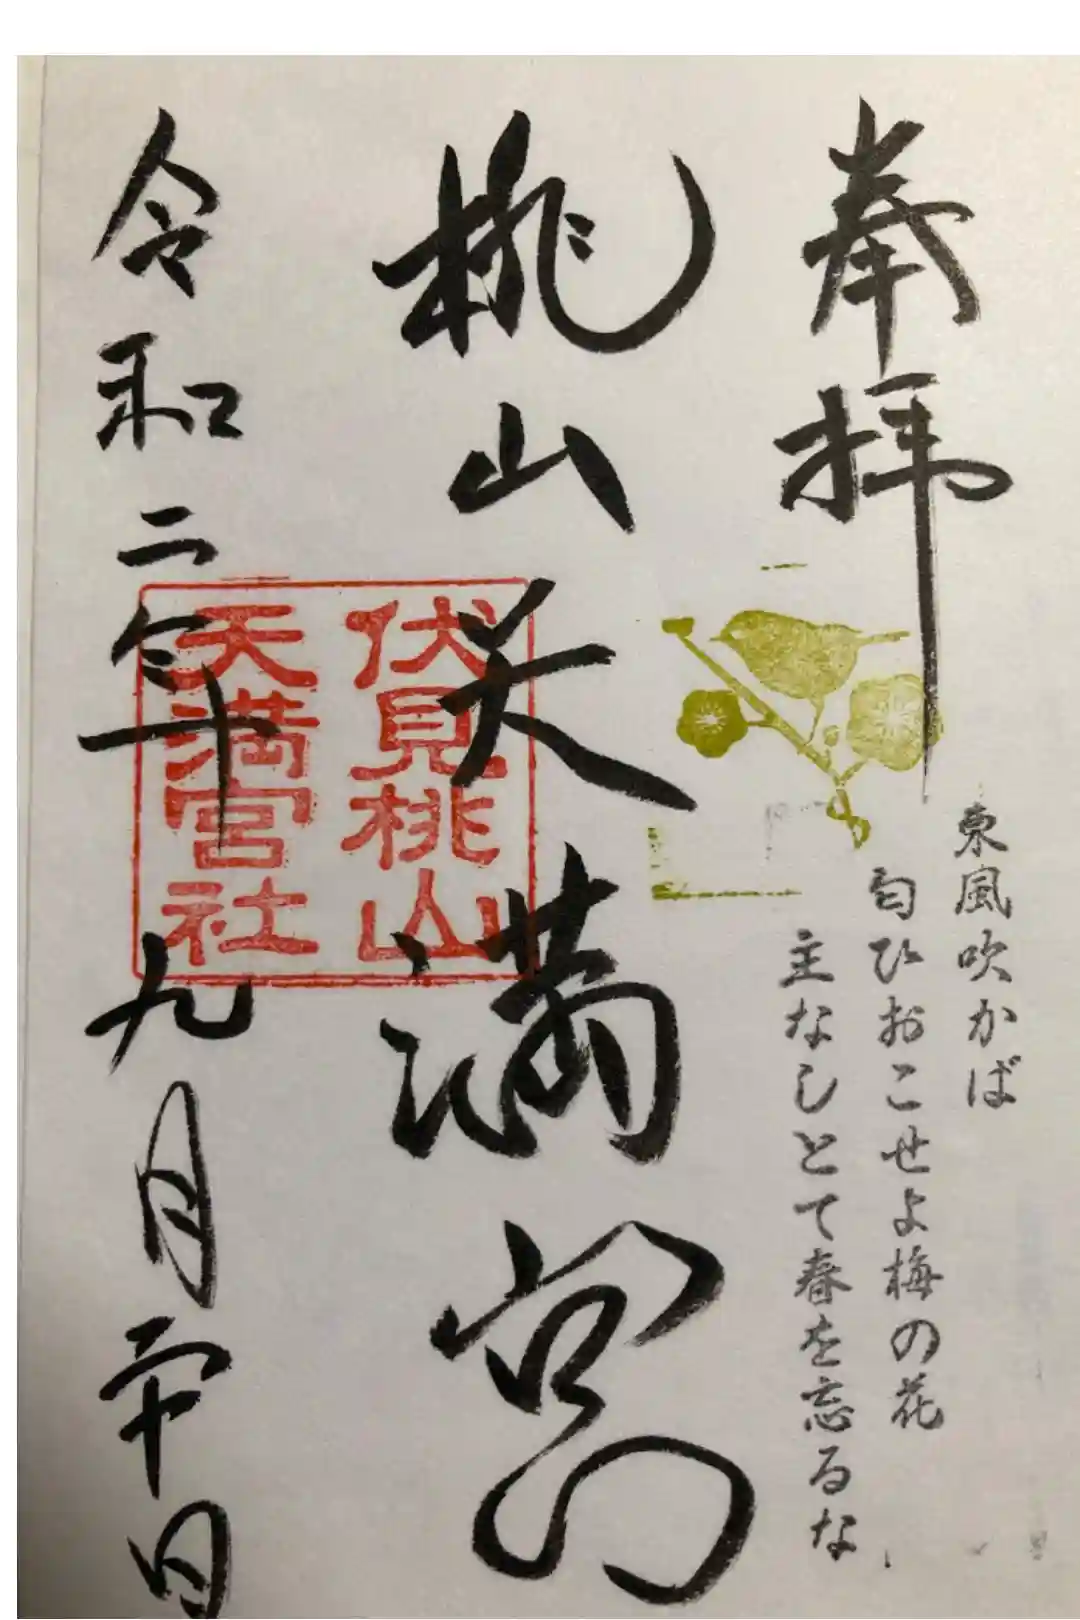 奉拝
東風吹かば
匂ひおこせよ梅の花
主なしとて春を忘るな
桃山天満宮
伏見桃山
天満宮社
令和二年九月二十日